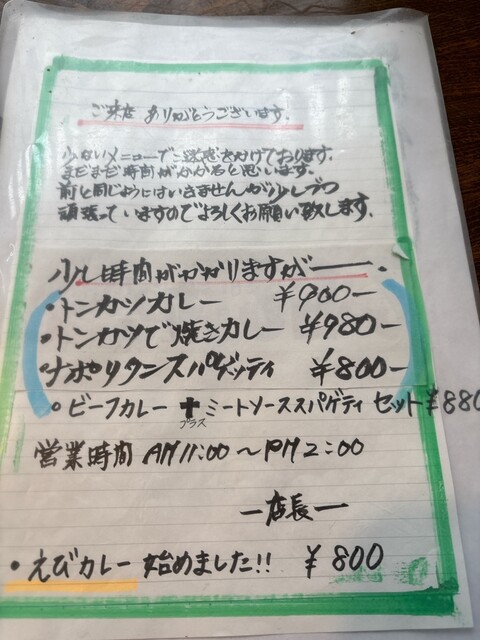 ご来店 ありがとうございます。
少ないメニューでご迷惑をかけております。
まだまだ時間がかかると思います。
前と同じようにはいきませんが少しづつ
頑張っていますのでよろしくお願い致します。
少し時間がかかりますが――。
・トンカツカレー ¥900-
・トンカツで焼きカレー ¥980-
・ナポリタンスパゲッティ ¥800-
・ビーフカレー+ミートソーススパゲティ セット¥880
プラス
営業時間 AM11:00～PM2:00
―店長―
・えびカレー 始めました!! ¥800